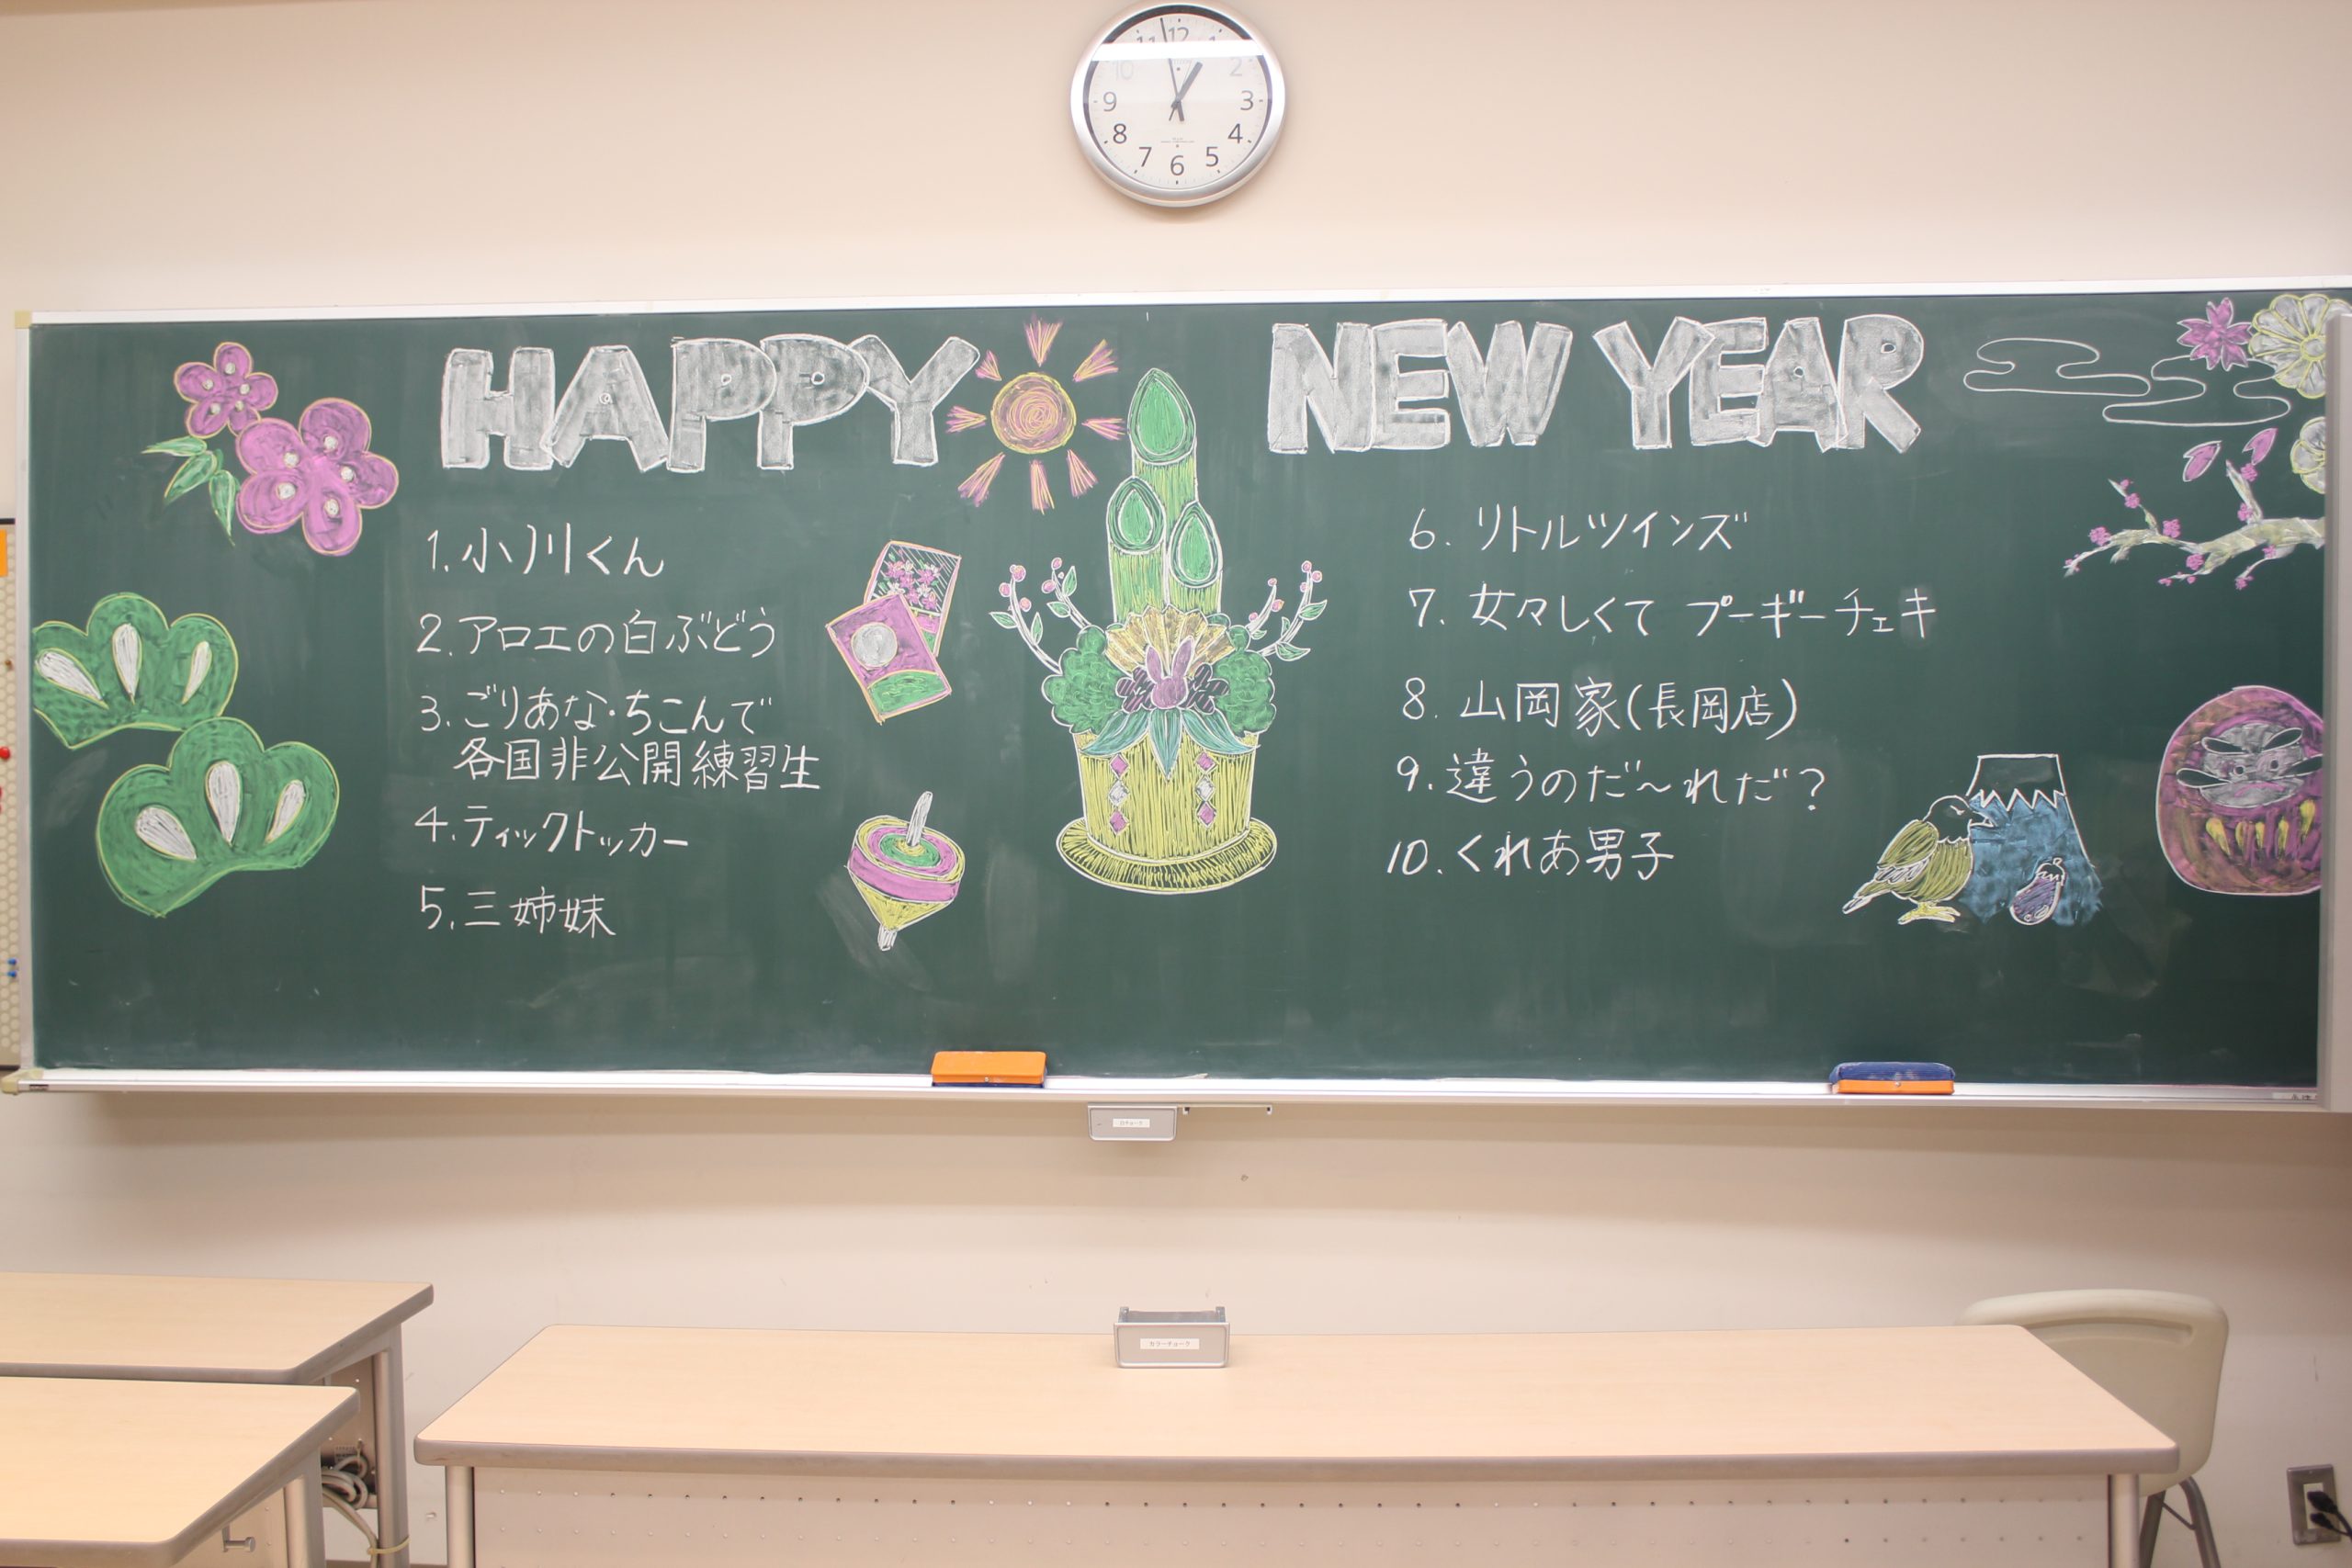 11 12 1
10 2
9 3
8 4
7 6 5
HAPPY NEW YEAR
1. 小川くん
2. アロエの白ぶどう
3. ごりあな・ちこんで
各国非公開練習生
4. ティックトッカー
5. 三姉妹
6. リトルツインズ
7. 女々しくて プーギーチェキ
8. 山岡家(長岡店)
9. 違うのだ～れだ?
10. くれあ男子
カラーチョーク